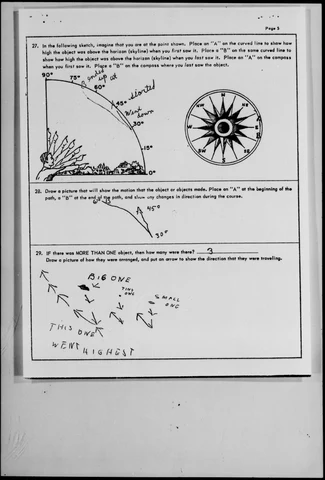 Page 5
27. In the following sketch, imagine that you are at the point shown. Place an "A" on the curved line to show how
high the object was above the horizon (skyline) when you first saw it. Place a "B" on the same curved line to
show how high the object was above the horizon (skyline) when you last saw it. Place an "A" on the compass
when you first saw it. Place a "B" on the compass where you last saw the object.
90°
75°
ended up at
60°
started
45°
went down
30°
15°
0°
N
NE
E
SE
S
SW
W
NW
28. Draw a picture that will show the motion that the object or objects made. Place an "A" at the beginning of the
path, a "B" at the end of the path, and show any changes in direction during the course.
A 45°
30°
29. IF there was MORE THAN ONE object, then how many were there? 3
Draw a picture of how they were arranged, and put an arrow to show the direction that they were traveling.
BIG ONE
TINY
ONE
SMALL
ONE
THIS ONE
WENT HIGHEST